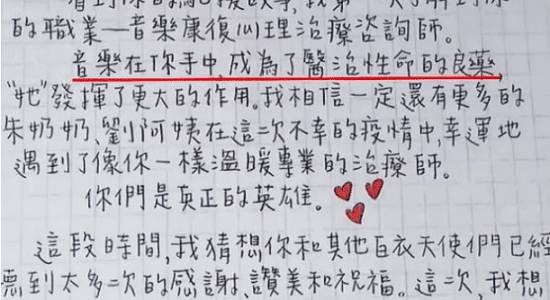 的職業—音樂康復心理治療咨詢師。
音樂在你手中,成為了醫治性命的良藥,
“她”發揮了更大的作用。我相信一定還有更多的
朱奶奶、劉阿姨在這次不幸的疫情中,幸運地
遇到了像你一樣溫暖專業的治療師。
你們是真正的英雄。
這段時間,我猜想你和其他白衣天使們已經
聽到太多次的感謝、讚美和祝福。這次,我想